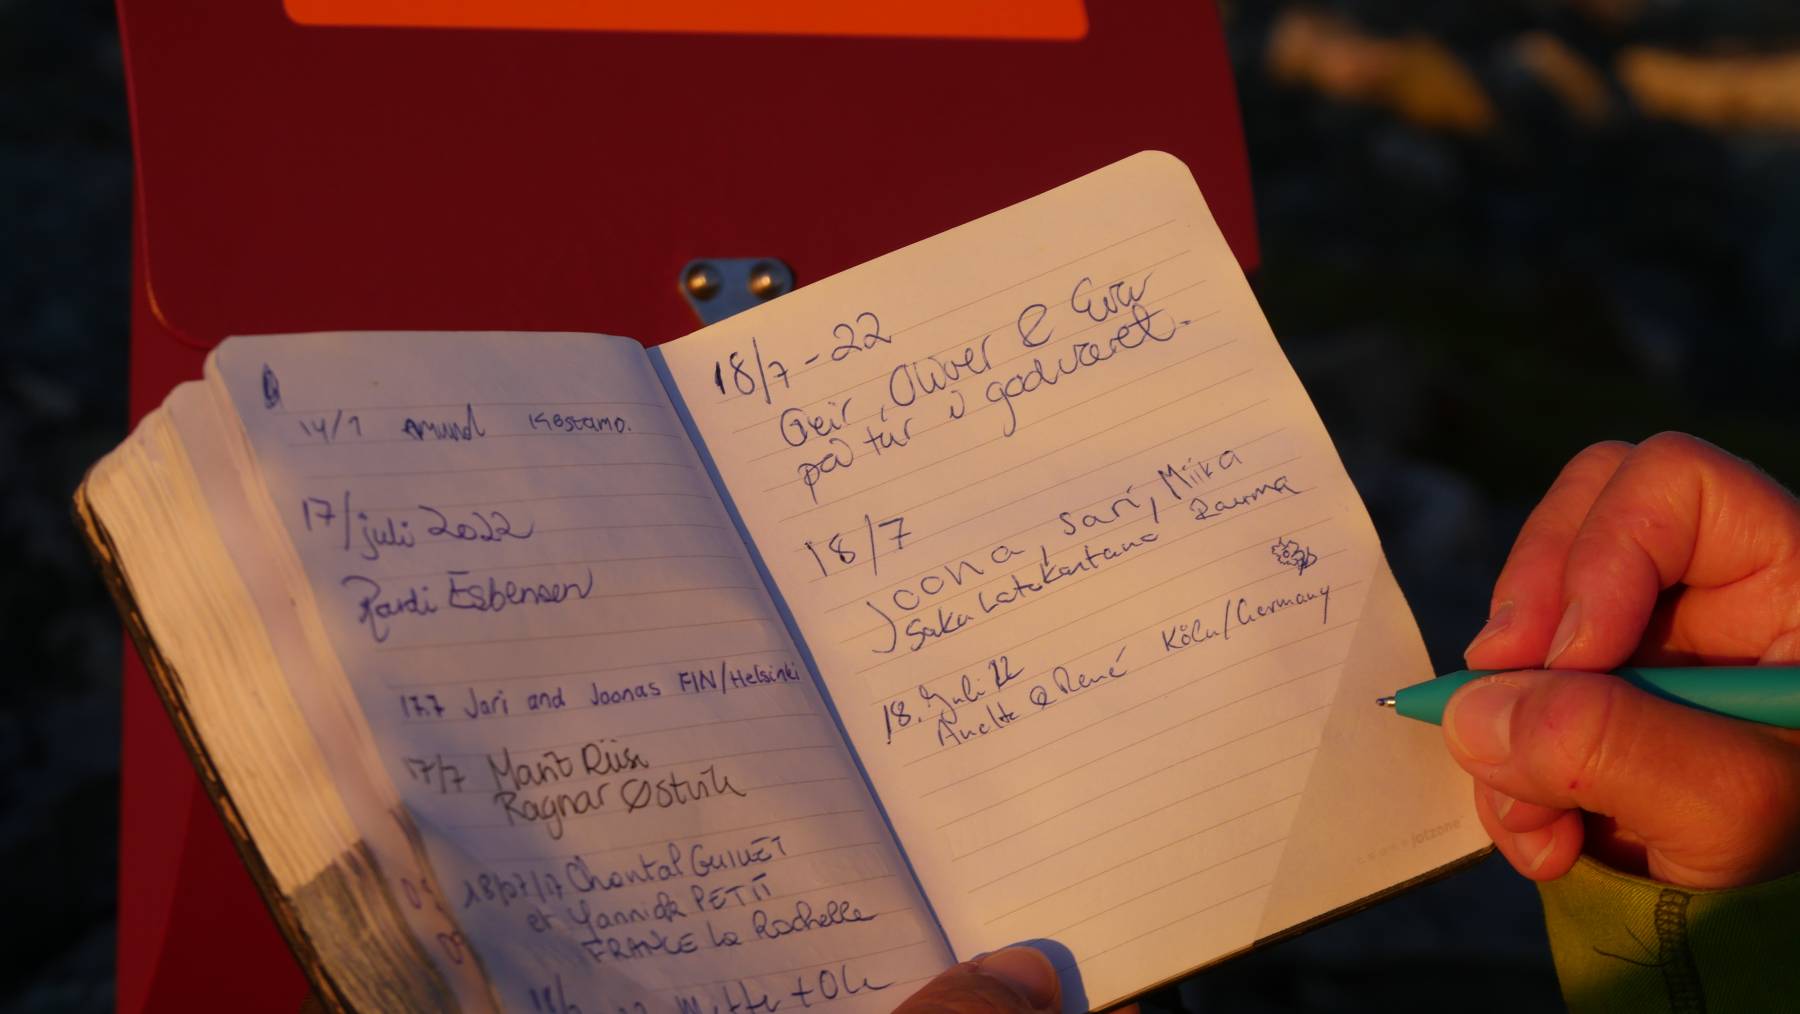 14/7 Amund Kostamo.
17/juli 2022
Randi Esbensen
17.7 Jari and Joonas FIN/Helsinki
17/7 Marit Riise
Ragnar Østvik
18/07/17 Chantal GUIVET
et Yannick PETIT
FRANCE La Rochelle
Mette + Ole
18/7-22
Geir, Oliver & Eva
på tur i godværet.
18/7
Joona, Sari, Miika
Rauma
18. Juli 22
Anette & René Köln/Germany
jotzone